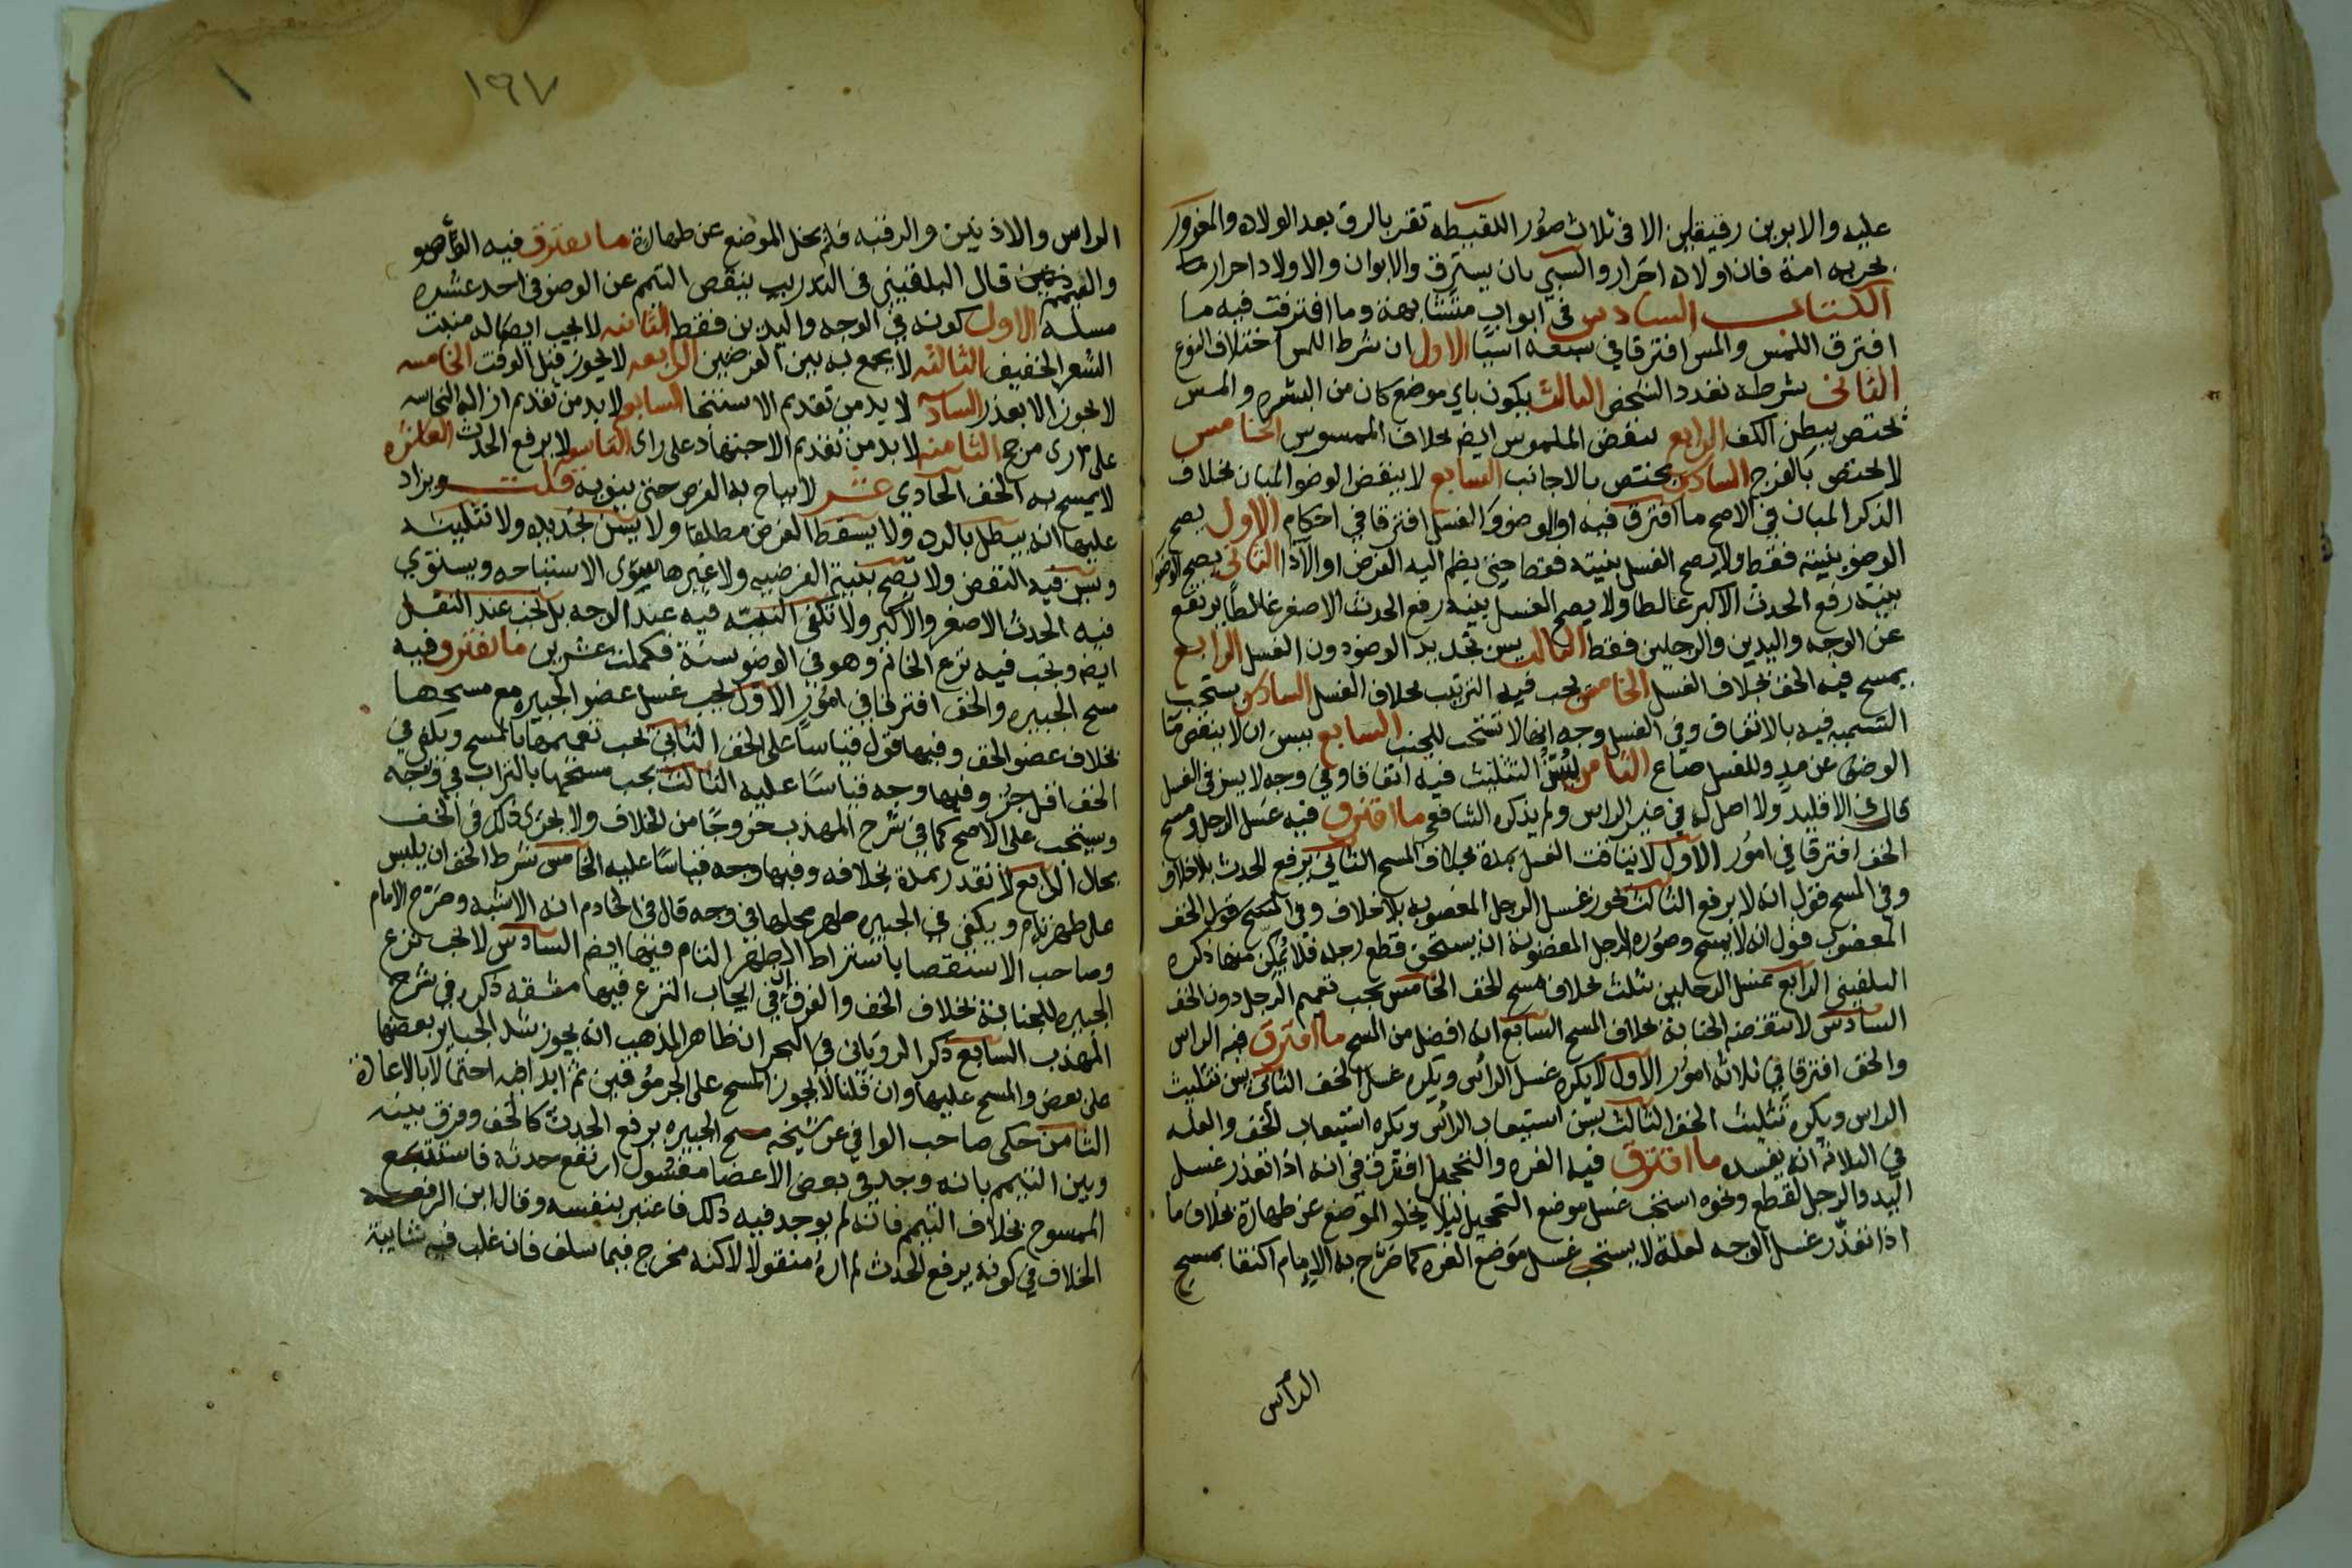 عليه والابوين رقيقين الا في ثلاث صور اللقيطه تقر بالرق بعد الولاده والمغرور
بحريه امة فان اولاده احرار والسبي بان يسترق والابوان والاولاد احرار
الكتاب السادس في ابواب متشابهة وما افترقت فيه ما
افترق اللمس والمس افترقا في سبعه اشيا الاول ان شرط اللمس اختلاف النوع
الثاني شرطه تعدد الشخص الثالث يكون باي موضع كان من البشره والمس
يختص ببطن الكف الرابع ينقض الملموس ايض بخلاف الممسوس الخامس
لا يختص بالفرج السادس يختص بالاجانب السابع لا ينقض الوضو المبان بخلاف
الذكر المبان في الاصح ما افترق فيه الوضو والغسل افترقا في احكام الاول يصح
الوضو بنيته فقط ولا يصح الغسل بنيته فقط حتى يضم اليه الفرض او الادا الثاني يصح الوضو
بنية رفع الحدث الاكبر غالطا ولا يصح الغسل بنية رفع الحدث الاصغر غالطا بل يرتفع
عن الوجه واليدين والرجلين فقط الثالث يسن تجديد الوضو دون الغسل الرابع
يمسح فيه الخف بخلاف الغسل الخامس يجب فيه الترتيب بخلاف الغسل السادس يستحب
التسميه فيه بالاتفاق وفي الغسل وجه انها لا تستحب للجنب السابع يسن ان لا ينقص ما
الوضو عن مد وللغسل صاع الثامن يسن التثليث فيه اتفاقا وفي وجه لا يسن في الغسل
قال في الاقليد ولا اصل له في غير الراس ولم يذكره الشافعي ما افترق فيه غسل الرجل ومسح
الخف افترقا في امور الاول لا يتاقت الغسل بمدة بخلاف المسح الثاني يرفع الحدث بلا خلاف
وفي المسح قول انه لا يرفع الثالث يجوز غسل الرجل المغصوبه بلا خلاف وفي المسح على الخف
المغصوب قول انه لا يمسح وصوره الرجل المغصوبة ان يستحق قطع رجله فلا يمكن منها ذكره
البلقيني الرابع غسل الرجلين يثلث بخلاف مسح الخف الخامس يجب تعميم الرجل دون الخف
السادس لا تنقضه الجنابة بخلاف المسح السابع انه افضل من المسح ما افترق فيه الراس
والخف افترقا في ثلاثة امور الاول لا يكره غسل الراس ويكره غسل الخف الثاني يسن تثليث
الراس ويكره تثليث الخف الثالث يسن استيعاب الراس ويكره استيعاب الخف والعله
في الثلاثة انه يفسده ما افترق فيه الغره والتحجيل افترقا في انه اذا تعذر غسل
اليد والرجل لقطع ونحوه استحب غسل موضع التحجيل ليلا يخلو الموضع عن طهارة بخلاف ما
اذا تعذر غسل الوجه لعلة لا يستحب غسل موضع الغره كما صرح به الامام اكتفا بمسح
الراس
١٩٧
الراس والاذنين والرقبه فلم يخل الموضع عن طهارة ما يفترق فيه الوضو
والتيمم قال البلقيني في التدريب ينقص التيمم عن الوضو في احد عشره
مسلة الاول كونه في الوجه واليدين فقط الثانيه لا يجب ايصاله منبت
الشعر الخفيف الثالثه لا يجمع به بين الفرضين الرابعه لا يجوز قبل الوقت الخامسه
لا يجوز الا بعذر السادسه لا بد من تقديم الاستنجا السابعه لا بد من تقديم ازالة النجاسه
على راى مرجح الثامنه لا بد من تقديم الاجتهاد على راى التاسعه لا يرفع الحدث العاشره
لا يمسح به الخف الحادي عشر لا يباح به الفرض حتى ينويه قلت ويزاد
عليها انه يبطل بالرده ولا يسقط الفرض مطلقا ولا يسن تجديده ولا تثليثه
ويسن فيه النفض ولا يصح بنية الفرضيه ولا غيرها سوى الاستباحه ويستوي
فيه الحدث الاصغر والاكبر ولا تكفى النيه فيه عند الوجه بل تجب عند النقل
ايض ويجب فيه نزع الخاتم وهو في الوضو سنة فكملت عشرين ما تفترق فيه
مسح الجبيره والخف افترقا في امور الاول يجب غسل عضو الجبيره مع مسحها
بخلاف عضو الخف وفيها قول قياسا على الخف الثاني يجب تعميمها بالمسح ويكفي في
الخف اقل جزء وفيها وجه قياسا عليه الثالث يجب مسحها بالتراب في وجه
ويستحب على الاصح كما في شرح المهذب خروجا من الخلاف ولا يجزى ذلك في الخف
بحال الرابع لا تقدر بمدة بخلافه وفيها وجه قياسا عليه الخامس شرط الخف ان يلبس
على طهر تام ويكفي في الجبيره طهر محلها في وجه قال في الخادم انه الاشبه وصرح الامام
وصاحب الاستقصا باشتراط الطهر التام فيها ايضم السادس لا يجب نزع
الجبيره للجنابة بخلاف الخف والفرق ان في ايجاب النزع فيها مشقه ذكره في شرح
المهذب السابع ذكر الروياني في البحر ان ظاهر المذهب انه يجوز شد الجباير بعضها
على بعض والمسح عليها وان قلنا لا يجوز المسح على الجرموقين ثم ابدا فيه احتمالا بالاعادة
الثامن حكى صاحب الوافي عن شيخه مسح الجبيره يرفع الحدث كالخف وفرق بينه
وبين التيمم بانه وجد في بعض الاعضا مغسول ارتفع حدثه فاستتبع
الممسوح بخلاف التيمم فانه لم يوجد فيه ذلك فاعتبر بنفسه وقال ابن الرفعه
الخلاف في كونه يرفع الحدث لم اره منقولا لاكنه مخرج فيما سلف فانه غلب فيه شايبة